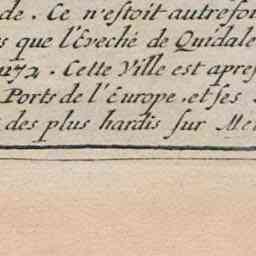 de. Ce n'estoit autrefoi
s que l'Eveché de Quidale
1172. Cette Ville est apres
Ports de l'Europe, et ses
des plus hardis sur Mer